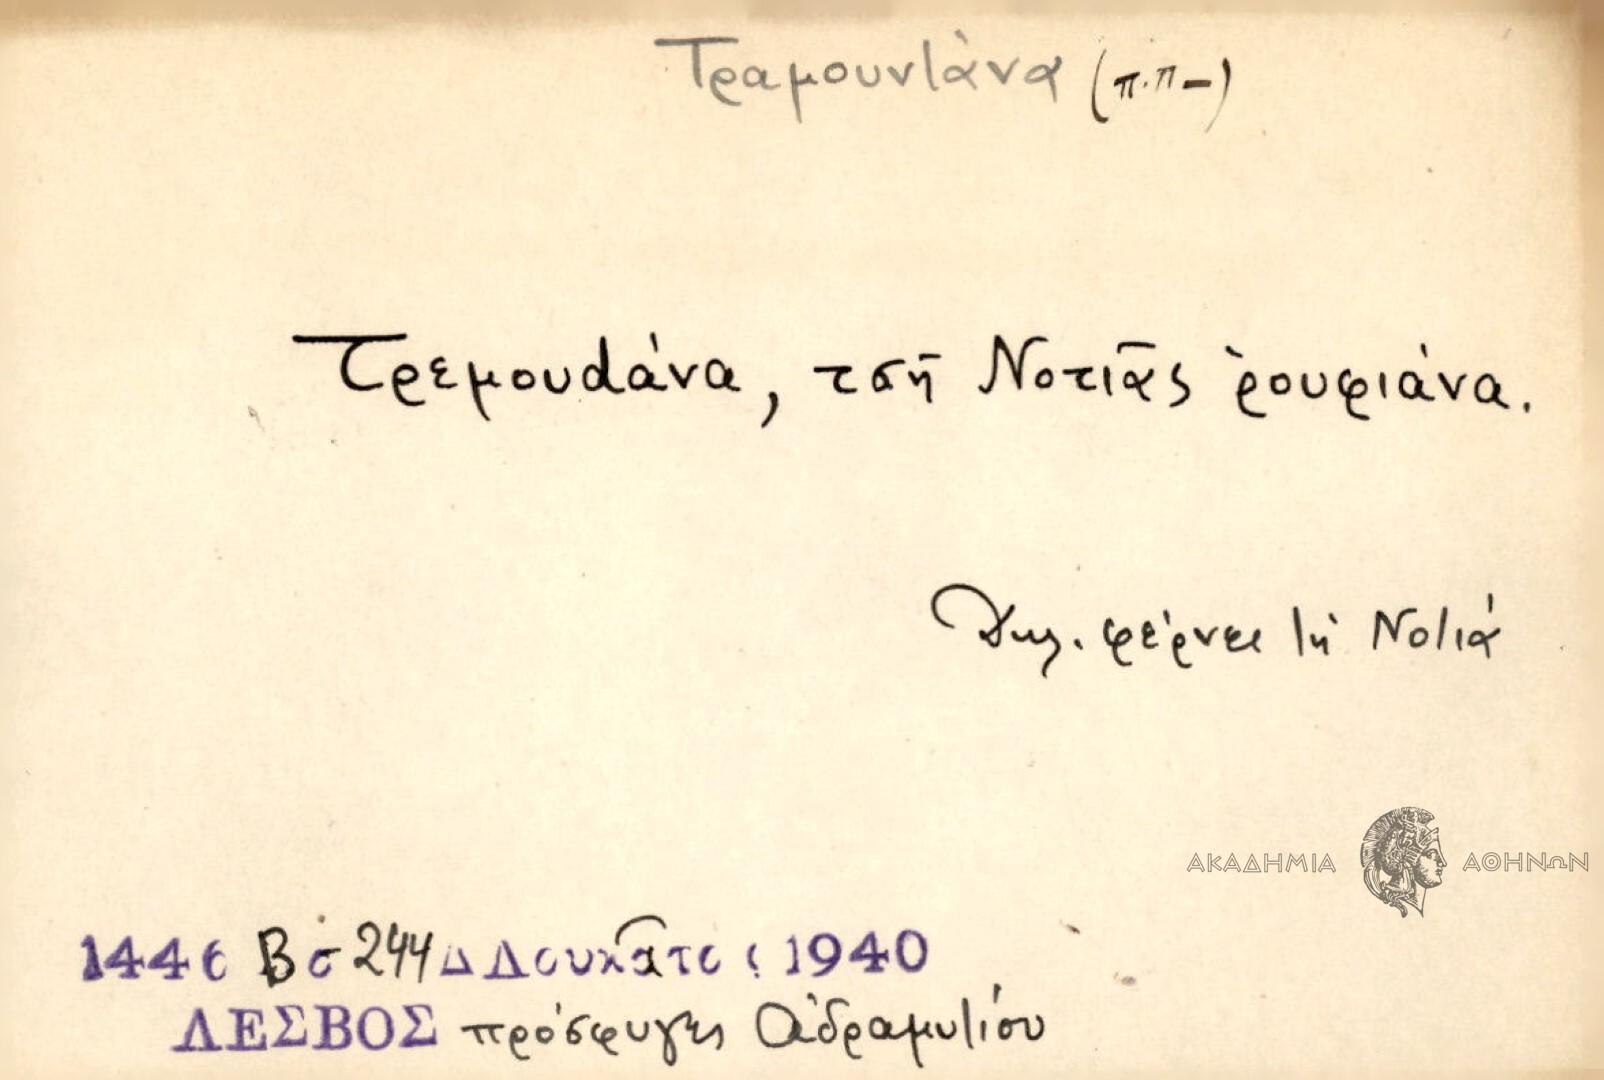 Τραμουντάνα (π.π-)
Τρεμουdάνα, τσῆ Νοτιᾶς ρουφιάνα.
Δηλ. φέρνει τὴ Νοτιά
ΑΚΑΔΗΜΙΑ ΑΘΗΝΩΝ
1446 Β σ 244 Δ Λουκᾶτος 1940
ΛΕΣΒΟΣ πρόσφυγες Ἀδραμυτίου